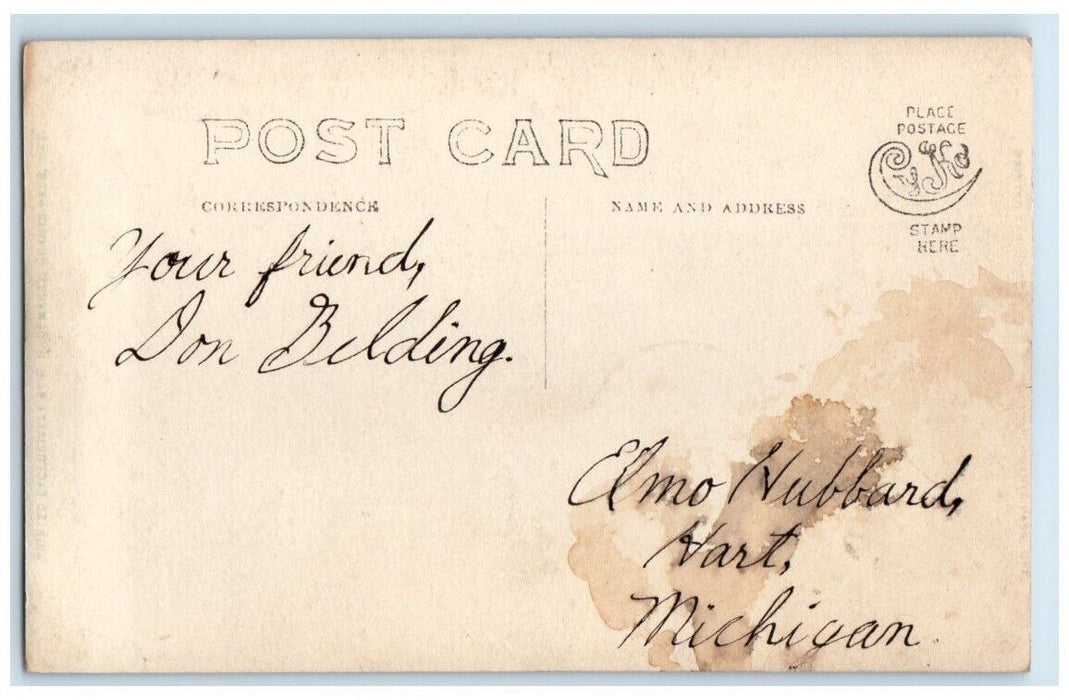 POST CARD
PLACE
POSTAGE
CyKo
STAMP
HERE
CORRESPONDENCE
NAME AND ADDRESS
Your friend,
Don Belding.
Elmo Hubbard,
Hart,
Michigan.